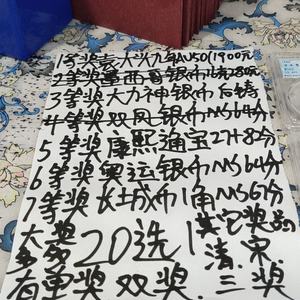 1等奖袁大头九年MS01900元
2等奖墨西哥银币1枚280元
3等奖大力神银币后铸
4等奖双凤银币MS64分
5等奖康熙通宝27+82分
6等奖奥运银币MS64分
7等奖长城币1角MS67分
大多 20选1 其它奖品
清宋
有重奖双奖三奖